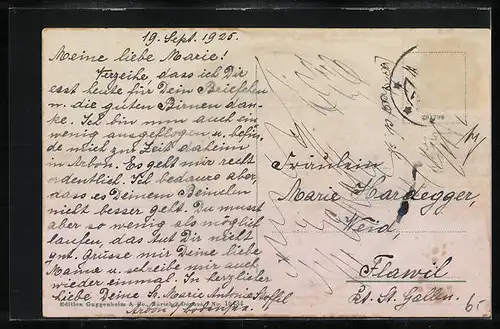 19. Sept. 1925.
Meine liebe Marie!
Verzeihe, dass ich Dir
erst heute für Dein Brieflein
u. die guten Birnen dan-
ke. Ich bin nun auch ein
wenig ausgeflogen u. befin-
de mich zur Zeit daheim
in Arbon. Es geht mir recht
ordentlich. Ich bedaure aber,
dass es Deinem Beinelein
nicht besser geht. Du musst
aber so wenig als möglich
laufen, das tut Dir nicht
gut. Grüsse mir Deine liebe
Mamme u. schreibe mir auch
wieder einmal. In herzlicher
Liebe Deine Sr. Marie Antonia Stoffel
Arbon
Edition Guggenheim & Co., Zürich
Fräulein
Marie Hardegger,
Weid
Flawil
Kt. St. Gallen.